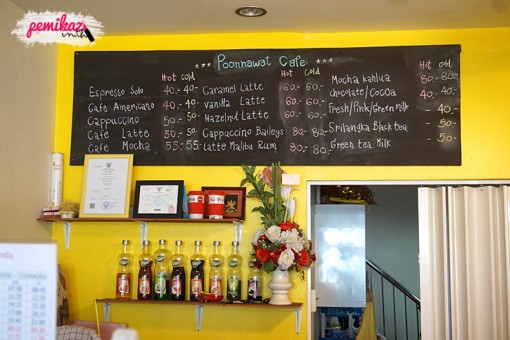 pemikaz
*** Poonnawat Cafe ***
Hot cold
Espresso Solo 40.- 40.-
Cafe Americano 40.- 40.-
Cappuccino 50.- 50.-
Cafe Latte 50.- 50.-
Cafe Mocha 55.- 55.-
Hot Cold
Caramel Latte 60.- 60.-
vanilla Latte 60.- 60.-
Hazelnut Latte 60.- 60.-
Cappuccino Baileys 80.- 80.-
Latte Malibu Rum 80.- 80.-
Hot cold
Mocha kahlua 80.- 80.-
chocolate/cocoa 40.- 40.-
Fresh/Pink/Green milk - 40.-
Srilangka Black tea - 50.-
Green tea Milk - 50.-